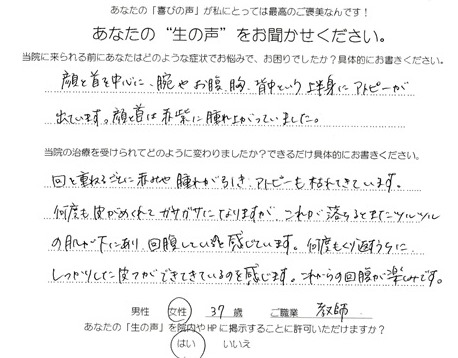 あなたの「喜びの声」が私にとっては最高のご褒美なんです！
あなたの“生の声”をお聞かせください。
当院に来られる前にあなたはどのような症状でお悩みで、お困りでしたか？具体的にお書きください。
顔と首を中心に、腕やお腹、胸、背中という上半身にアトピーが
出ています。顔と首は赤紫に腫れ上がっていました。
当院の治療を受けられてどのように変わりましたか？できるだけ具体的にお書きください。
回を重ねるごとに赤みや腫れが引き、アトピーも枯れてきています。
何度も皮がめくれてガサガサになりますが、これが落ちるとまたツルツル
の肌が下にあり、回腹しているを感じています。何度もくり返すうちに、
しっかりした皮フができてきているのを感じます。これからの回腹が楽しみです。
男性 女性 37 歳 ご職業 教師
あなたの「生の声」を院内やHPに掲示することに許可いただけますか？
はい いいえ